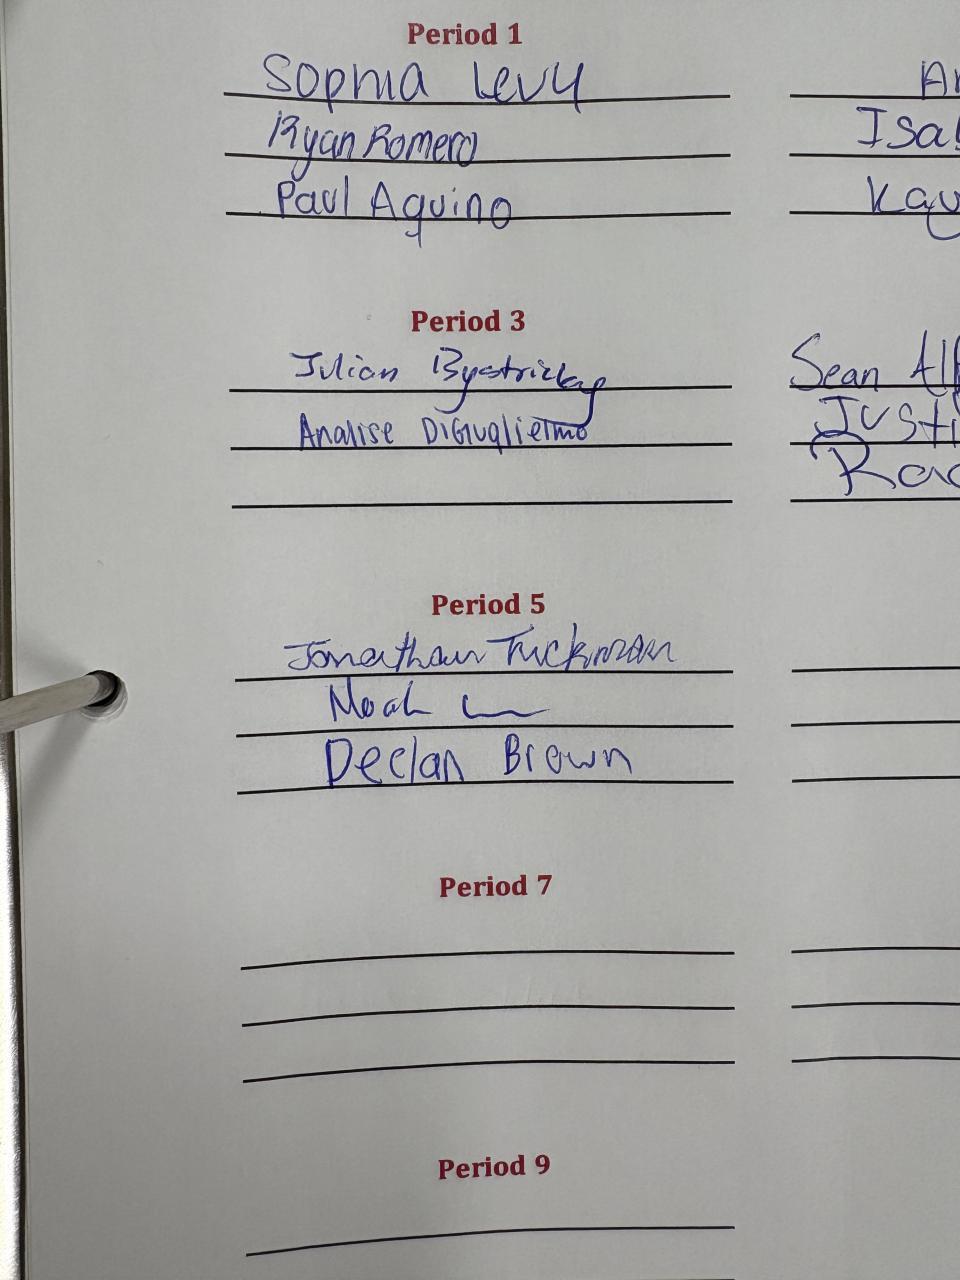 Period 1
Sophia Levy
Ryan Romero
Isa
Paul Aquino
Kay
Period 3
Julian Bystricky
Sean Alf
Analise DiGuglielmo
Justi
Period 5
Jonathan Tuckman
Noah
Declan Brown
Period 7
Period 9